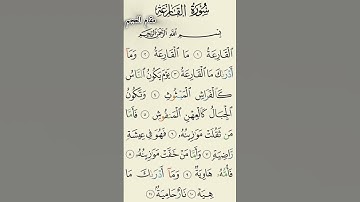 سُورَةُ القَارِعَةِ
مقام العجم
بِسْمِ اللَّهِ الرَّحْمَٰنِ الرَّحِيمِ
الْقَارِعَةُ ١ مَا الْقَارِعَةُ ٢ وَمَا
أَدْرَىٰكَ مَا الْقَارِعَةُ ٣ يَوْمَ يَكُونُ النَّاسُ
كَالْفَرَاشِ الْمَبْثُوثِ ٤ وَتَكُونُ
الْجِبَالُ كَالْعِهْنِ الْمَنفُوشِ ٥ فَأَمَّا
مَن ثَقُلَتْ مَوَٰزِينُهُ ٦ فَهُوَ فِي عِيشَةٍ
رَّاضِيَةٍ ٧ وَأَمَّا مَنْ خَفَّتْ مَوَٰزِينُهُ ٨
فَأُمُّهُ هَاوِيَةٌ ٩ وَمَا أَدْرَىٰكَ مَا
هِيَهْ ١٠ نَارٌ حَامِيَةٌ ١١